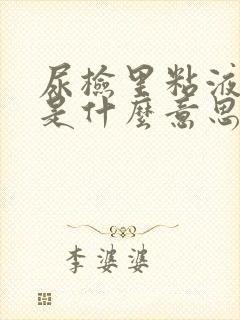 尿檢里粘液
是什麼意思
李婆婆